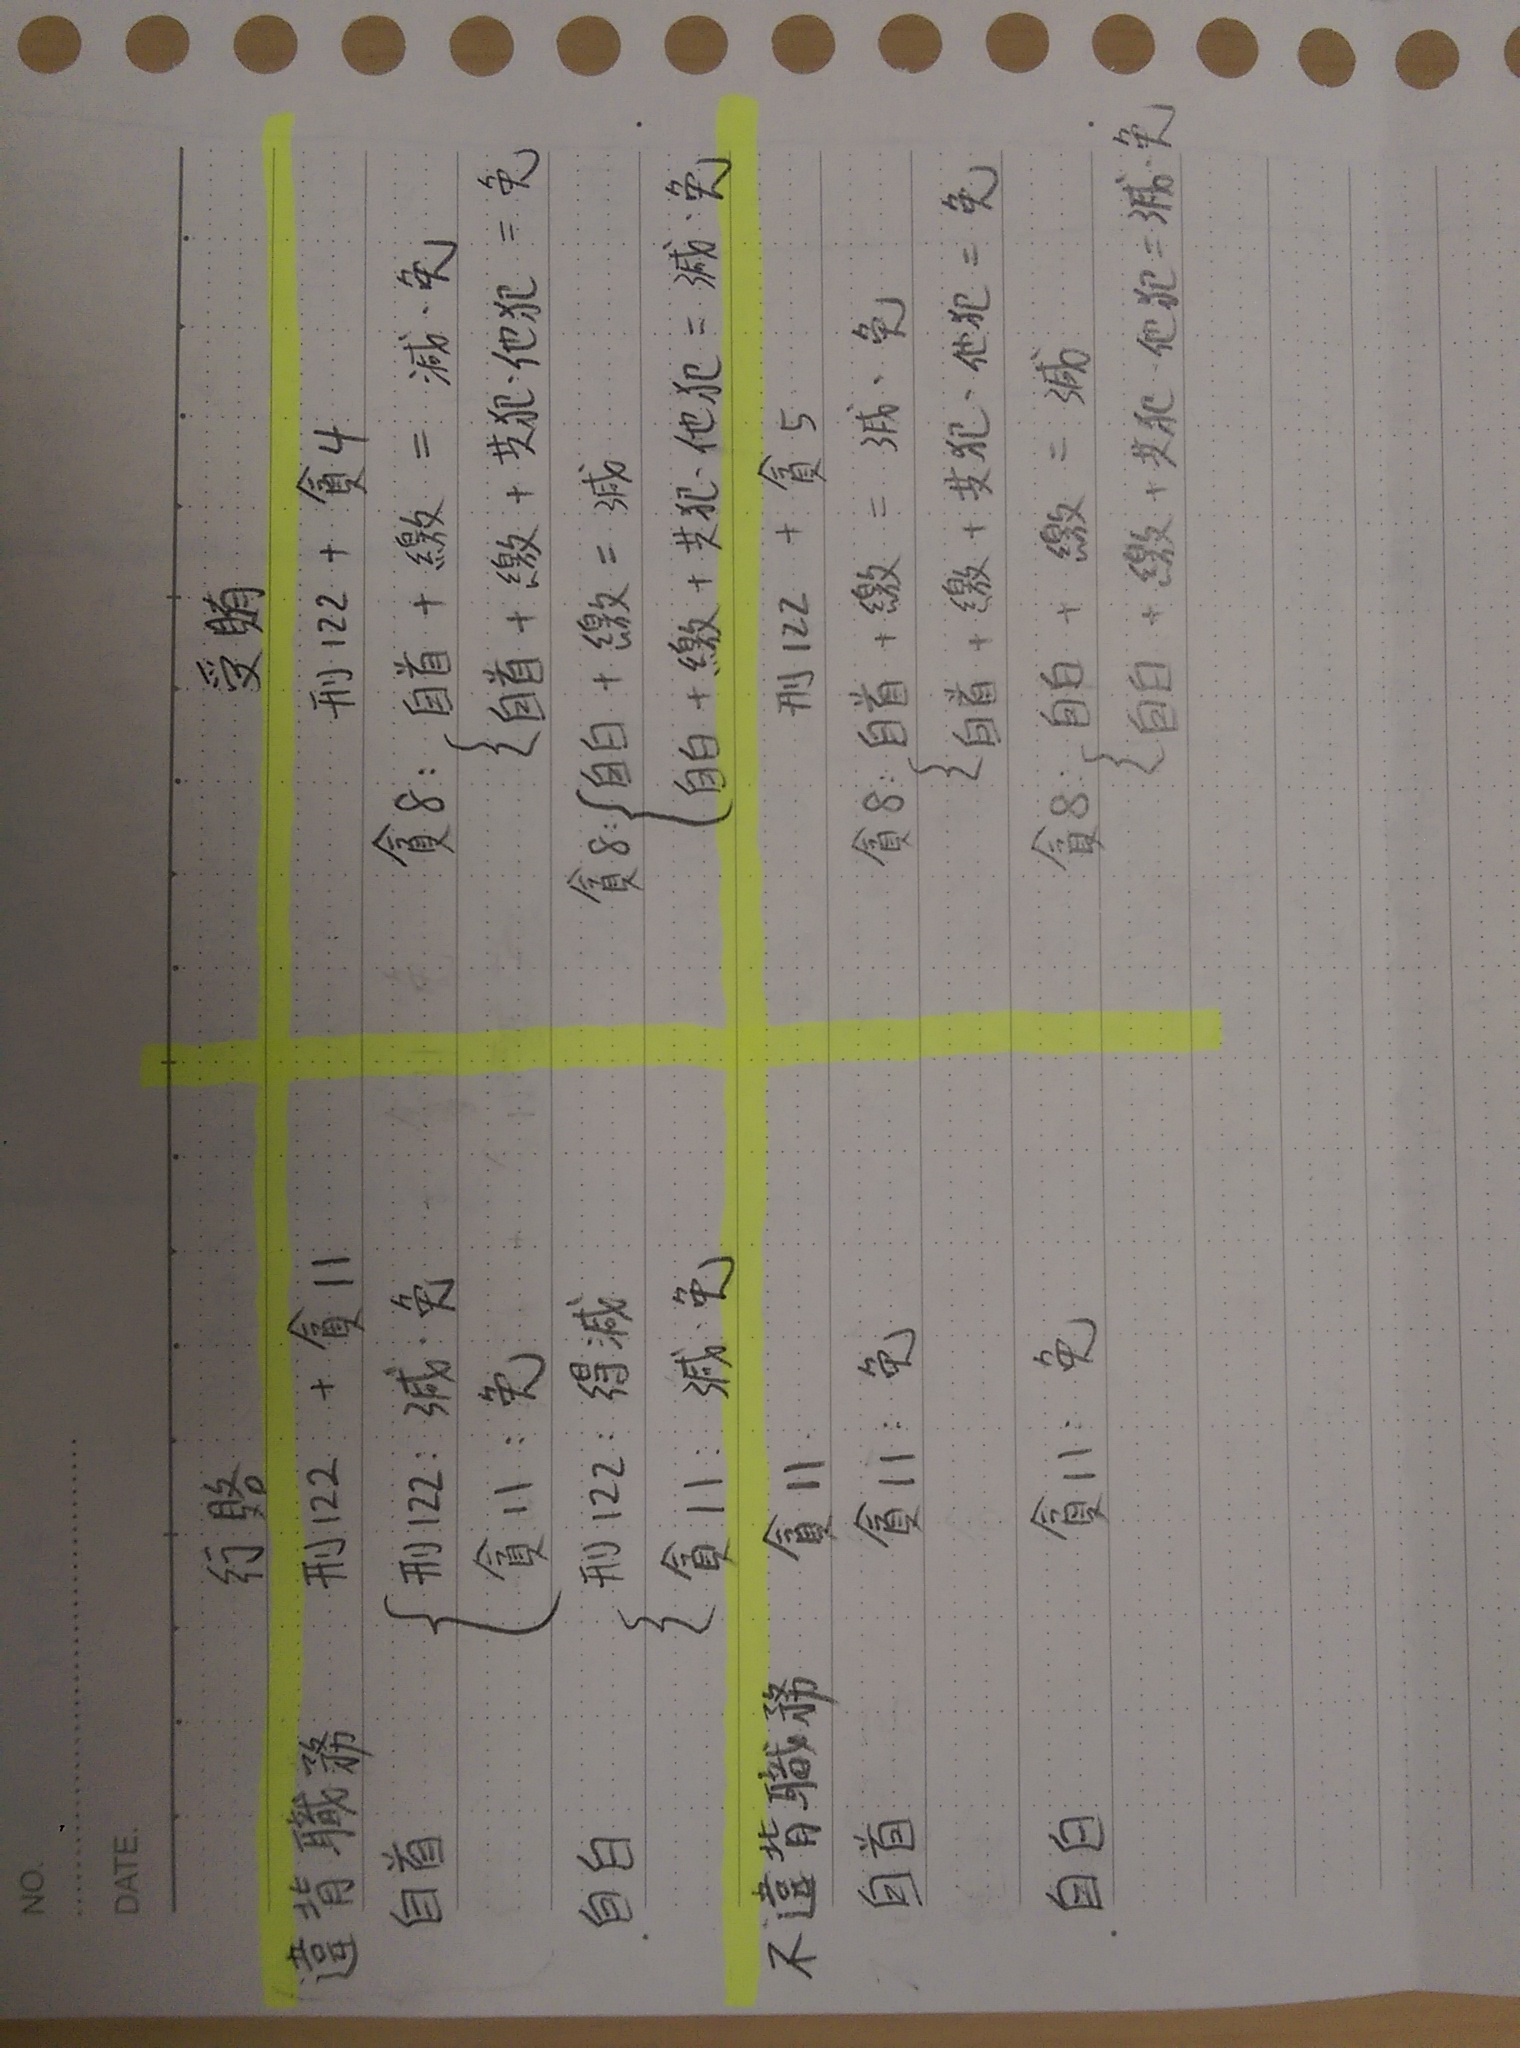 NO.
DATE.
行賂 受賄
違背職務 刑122 + 貪11 刑122 + 貪4
自首 刑122: 減、免 貪8: 自首 + 繳 = 減、免
貪11: 免 自首 + 繳 + 共犯、他犯 = 免
自白 刑122: 得減 貪8: 自白 + 繳 = 減
貪11: 減、免 自白 + 繳 + 共犯、他犯 = 減、免
不違背職務 貪11 刑122 + 貪5
自首 貪11: 免 貪8: 自首 + 繳 = 減、免
自首 + 繳 + 共犯、他犯 = 免
自白 貪11: 免 貪8: 自白 + 繳 = 減
自白 + 繳 + 共犯、他犯 = 減、免